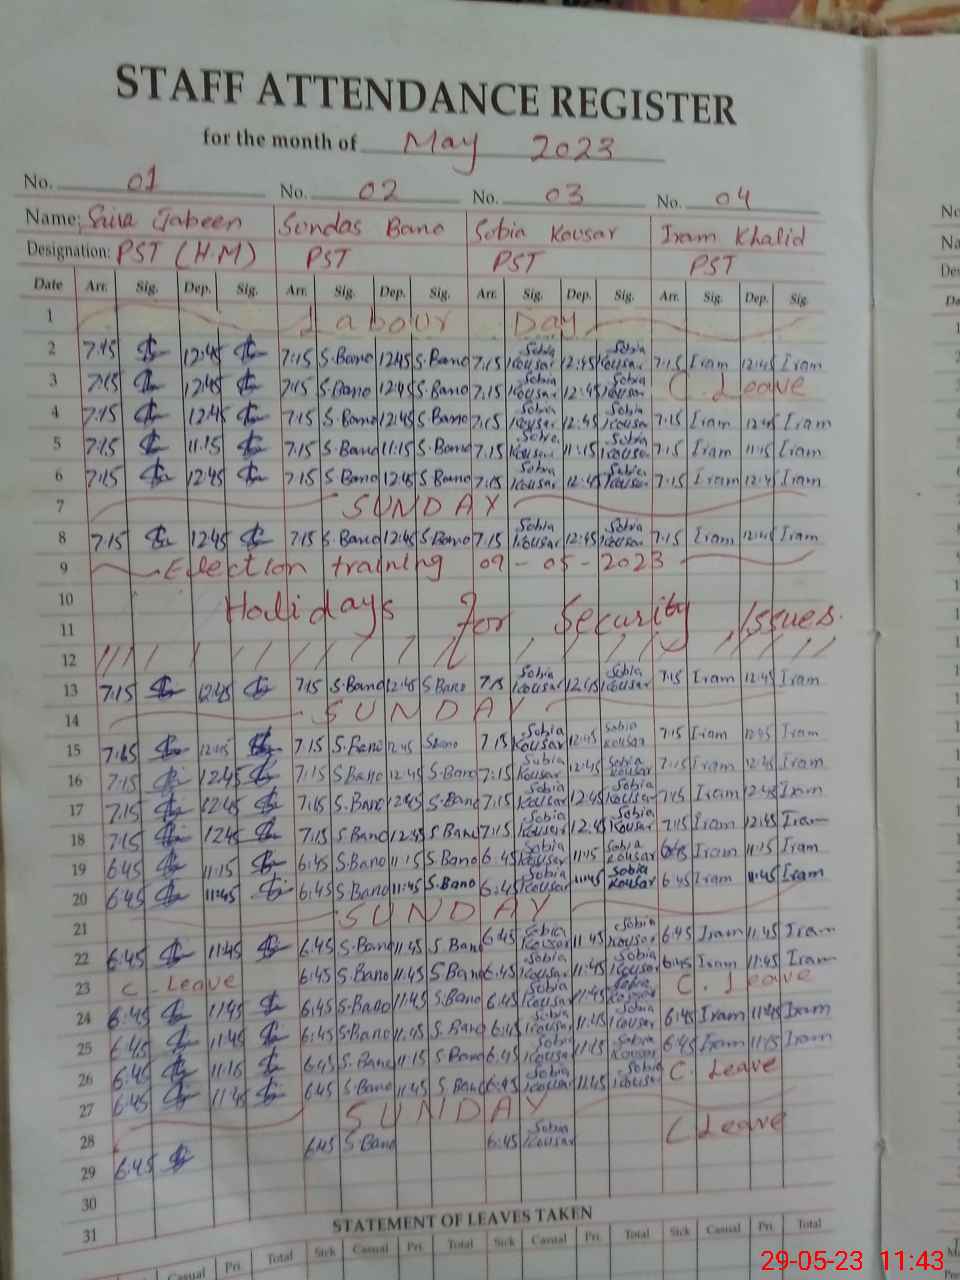 STAFF ATTENDANCE REGISTER
for the month of May 2023
No. 01 No. 02 No. 03 No. 04
Name: Saira Jabeen Sundas Bano Sobia Kousar Iram Khalid
Designation: PST (H.M) PST PST PST
Date Arr. Sig. Dep. Sig. Arr. Sig. Dep. Sig. Arr. Sig. Dep. Sig. Arr. Sig. Dep. Sig.
1 Labour Day
2 7:15 12:45 7:15 S.Bano 12:45 S.Bano 7:15 Sobia Kousar 12:45 Sobia Kousar 7:15 Iram 12:45 Iram
3 7:15 12:45 7:15 S.Bano 12:45 S.Bano 7:15 Sobia Kousar 12:45 Sobia Kousar C. Leave
4 7:15 12:45 7:15 S.Bano 12:45 S.Bano 7:15 Sobia Kousar 12:45 Sobia Kousar 7:15 Iram 12:45 Iram
5 7:15 11:15 7:15 S.Bano 11:15 S.Bano 7:15 Sobia Kousar 11:15 Sobia Kousar 7:15 Iram 11:15 Iram
6 7:15 12:45 7:15 S.Bano 12:45 S.Bano 7:15 Sobia Kousar 12:45 Sobia Kousar 7:15 Iram 12:45 Iram
7 SUNDAY
8 7:15 12:45 7:15 S.Bano 12:45 S.Bano 7:15 Sobia Kousar 12:45 Sobia Kousar 7:15 Iram 12:45 Iram
9 Election training 09-05-2023
10 Holidays for Security Issues.
11
12
13 7:15 12:45 7:15 S.Bano 12:45 S.Bano 7:15 Sobia Kousar 12:45 Sobia Kousar 7:15 Iram 12:45 Iram
14 SUNDAY
15 7:15 12:45 7:15 S.Bano 12:45 S.Bano 7:15 Sobia Kousar 12:45 Sobia Kousar 7:15 Iram 12:45 Iram
16 7:15 12:45 7:15 S.Bano 12:45 S.Bano 7:15 Sobia Kousar 12:45 Sobia Kousar 7:15 Iram 12:45 Iram
17 7:15 12:45 7:15 S.Bano 12:45 S.Bano 7:15 Sobia Kousar 12:45 Sobia Kousar 7:15 Iram 12:45 Iram
18 7:15 12:45 7:15 S.Bano 12:45 S.Bano 7:15 Sobia Kousar 12:45 Sobia Kousar 7:15 Iram 12:45 Iram
19 6:45 11:15 6:45 S.Bano 11:15 S.Bano 6:45 Sobia Kousar 11:15 Sobia Kousar 6:45 Iram 11:15 Iram
20 6:45 11:45 6:45 S.Bano 11:45 S.Bano 6:45 Sobia Kousar 11:45 Sobia Kousar 6:45 Iram 11:45 Iram
21 SUNDAY
22 6:45 11:45 6:45 S.Bano 11:45 S.Bano 6:45 Sobia Kousar 11:45 Sobia Kousar 6:45 Iram 11:45 Iram
23 C. Leave 6:45 S.Bano 11:45 S.Bano 6:45 Sobia Kousar 11:45 Sobia Kousar 6:45 Iram 11:45 Iram
24 6:45 11:45 6:45 S.Bano 11:45 S.Bano 6:45 Sobia Kousar 11:45 Sobia Kousar C. Leave
25 6:45 11:45 6:45 S.Bano 11:45 S.Bano 6:45 Sobia Kousar 11:45 Sobia Kousar 6:45 Iram 11:45 Iram
26 6:45 11:15 6:45 S.Bano 11:15 S.Bano 6:45 Sobia Kousar 11:15 Sobia Kousar 6:45 Iram 11:15 Iram
27 6:45 11:45 6:45 S.Bano 11:45 S.Bano 6:45 Sobia Kousar 11:45 Sobia Kousar C. Leave
28 SUNDAY
29 6:45 6:45 S.Bano 6:45 Sobia Kousar C Leave
30
31
STATEMENT OF LEAVES TAKEN
Casual Pri. Total Sick Casual Pri. Total Sick Casual Pri. Total Sick Casual Pri. Total
29-05-23 11:43